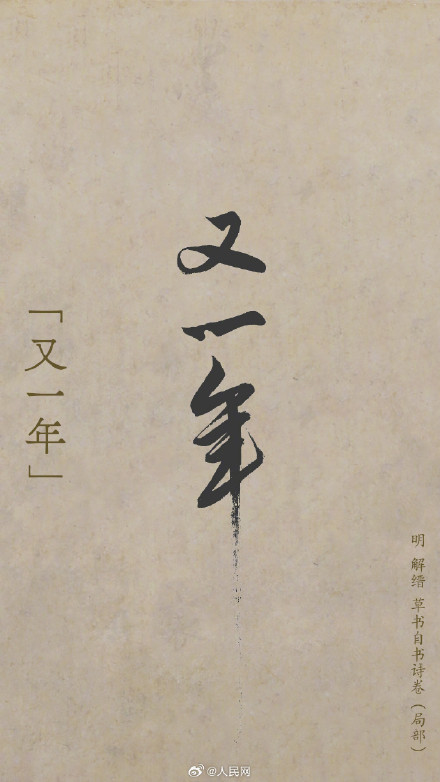 又一年
「又一年」
明 解缙 草书自书诗卷（局部）
@人民网